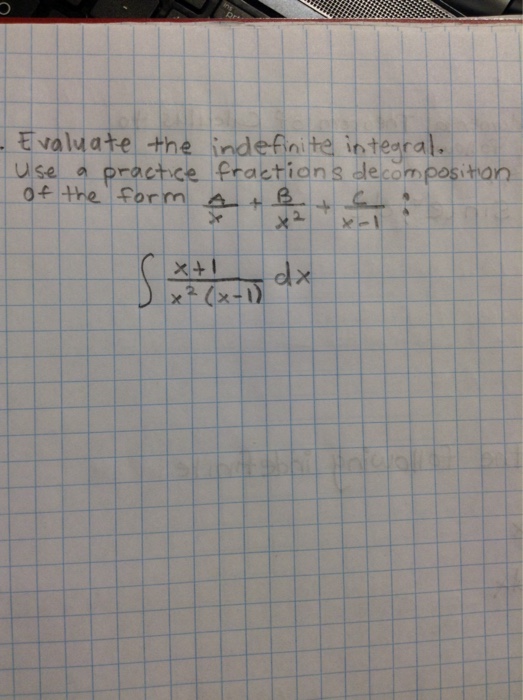 . Evaluate the indefinite integral.
Use a practice fractions decomposition
of the form A/x + B/x² + C/x-1 :
∫ x+1/x²(x-1) dx